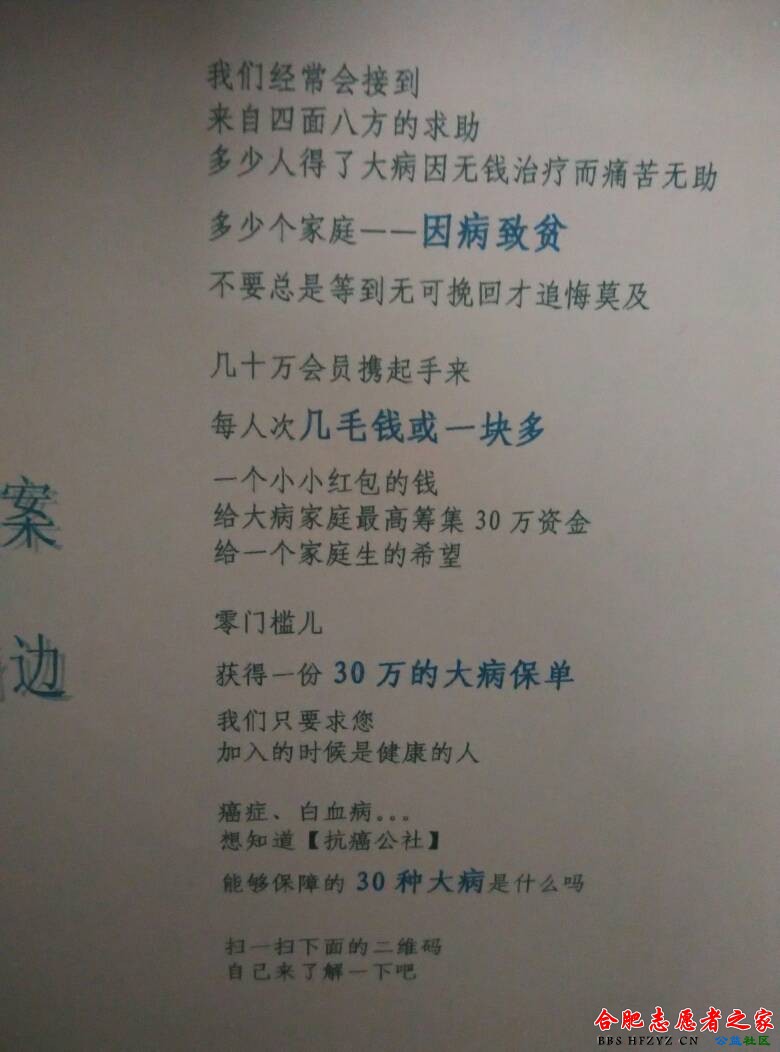 我们经常会接到
来自四面八方的求助
多少人得了大病因无钱治疗而痛苦无助
多少个家庭——因病致贫
不要总是等到无可挽回才追悔莫及
几十万会员携起手来
每人次几毛钱或一块多
一个小小红包的钱
给大病家庭最高筹集 30 万资金
给一个家庭生的希望
案
边
零门槛儿
获得一份 30 万的大病保单
我们只要求您
加入的时候是健康的人
癌症、白血病。。。
想知道【抗癌公社】
能够保障的 30 种大病是什么吗
扫一扫下面的二维码
自己来了解一下吧
合肥志愿者之家
BBS HFZYZ CN 公益社区